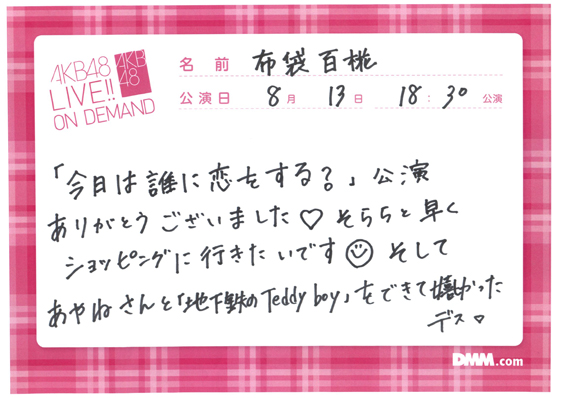 AKB48
LIVE!!
ON DEMAND
AKB
48
名前 布袋百桃
公演日 8月 13日 18:30公演
「今日は誰に恋をする?」公演
ありがとうございました♡ そららと早く
ショッピングに行きたいです☺ そして
あやねさんと「地下鉄のTeddy boy」をできて嬉かった
デス♡
DMM.com